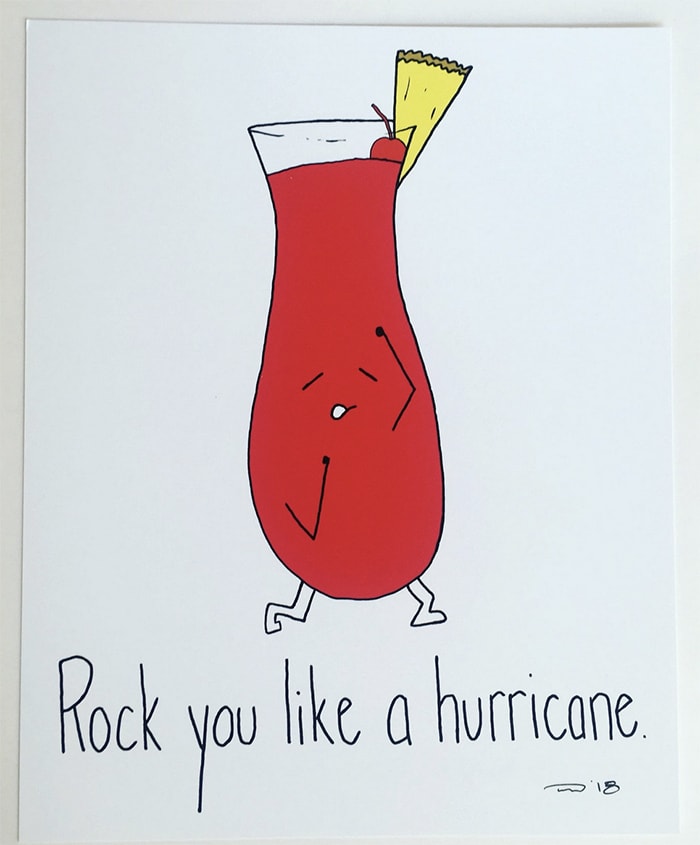 Rock you like a hurricane.
'18